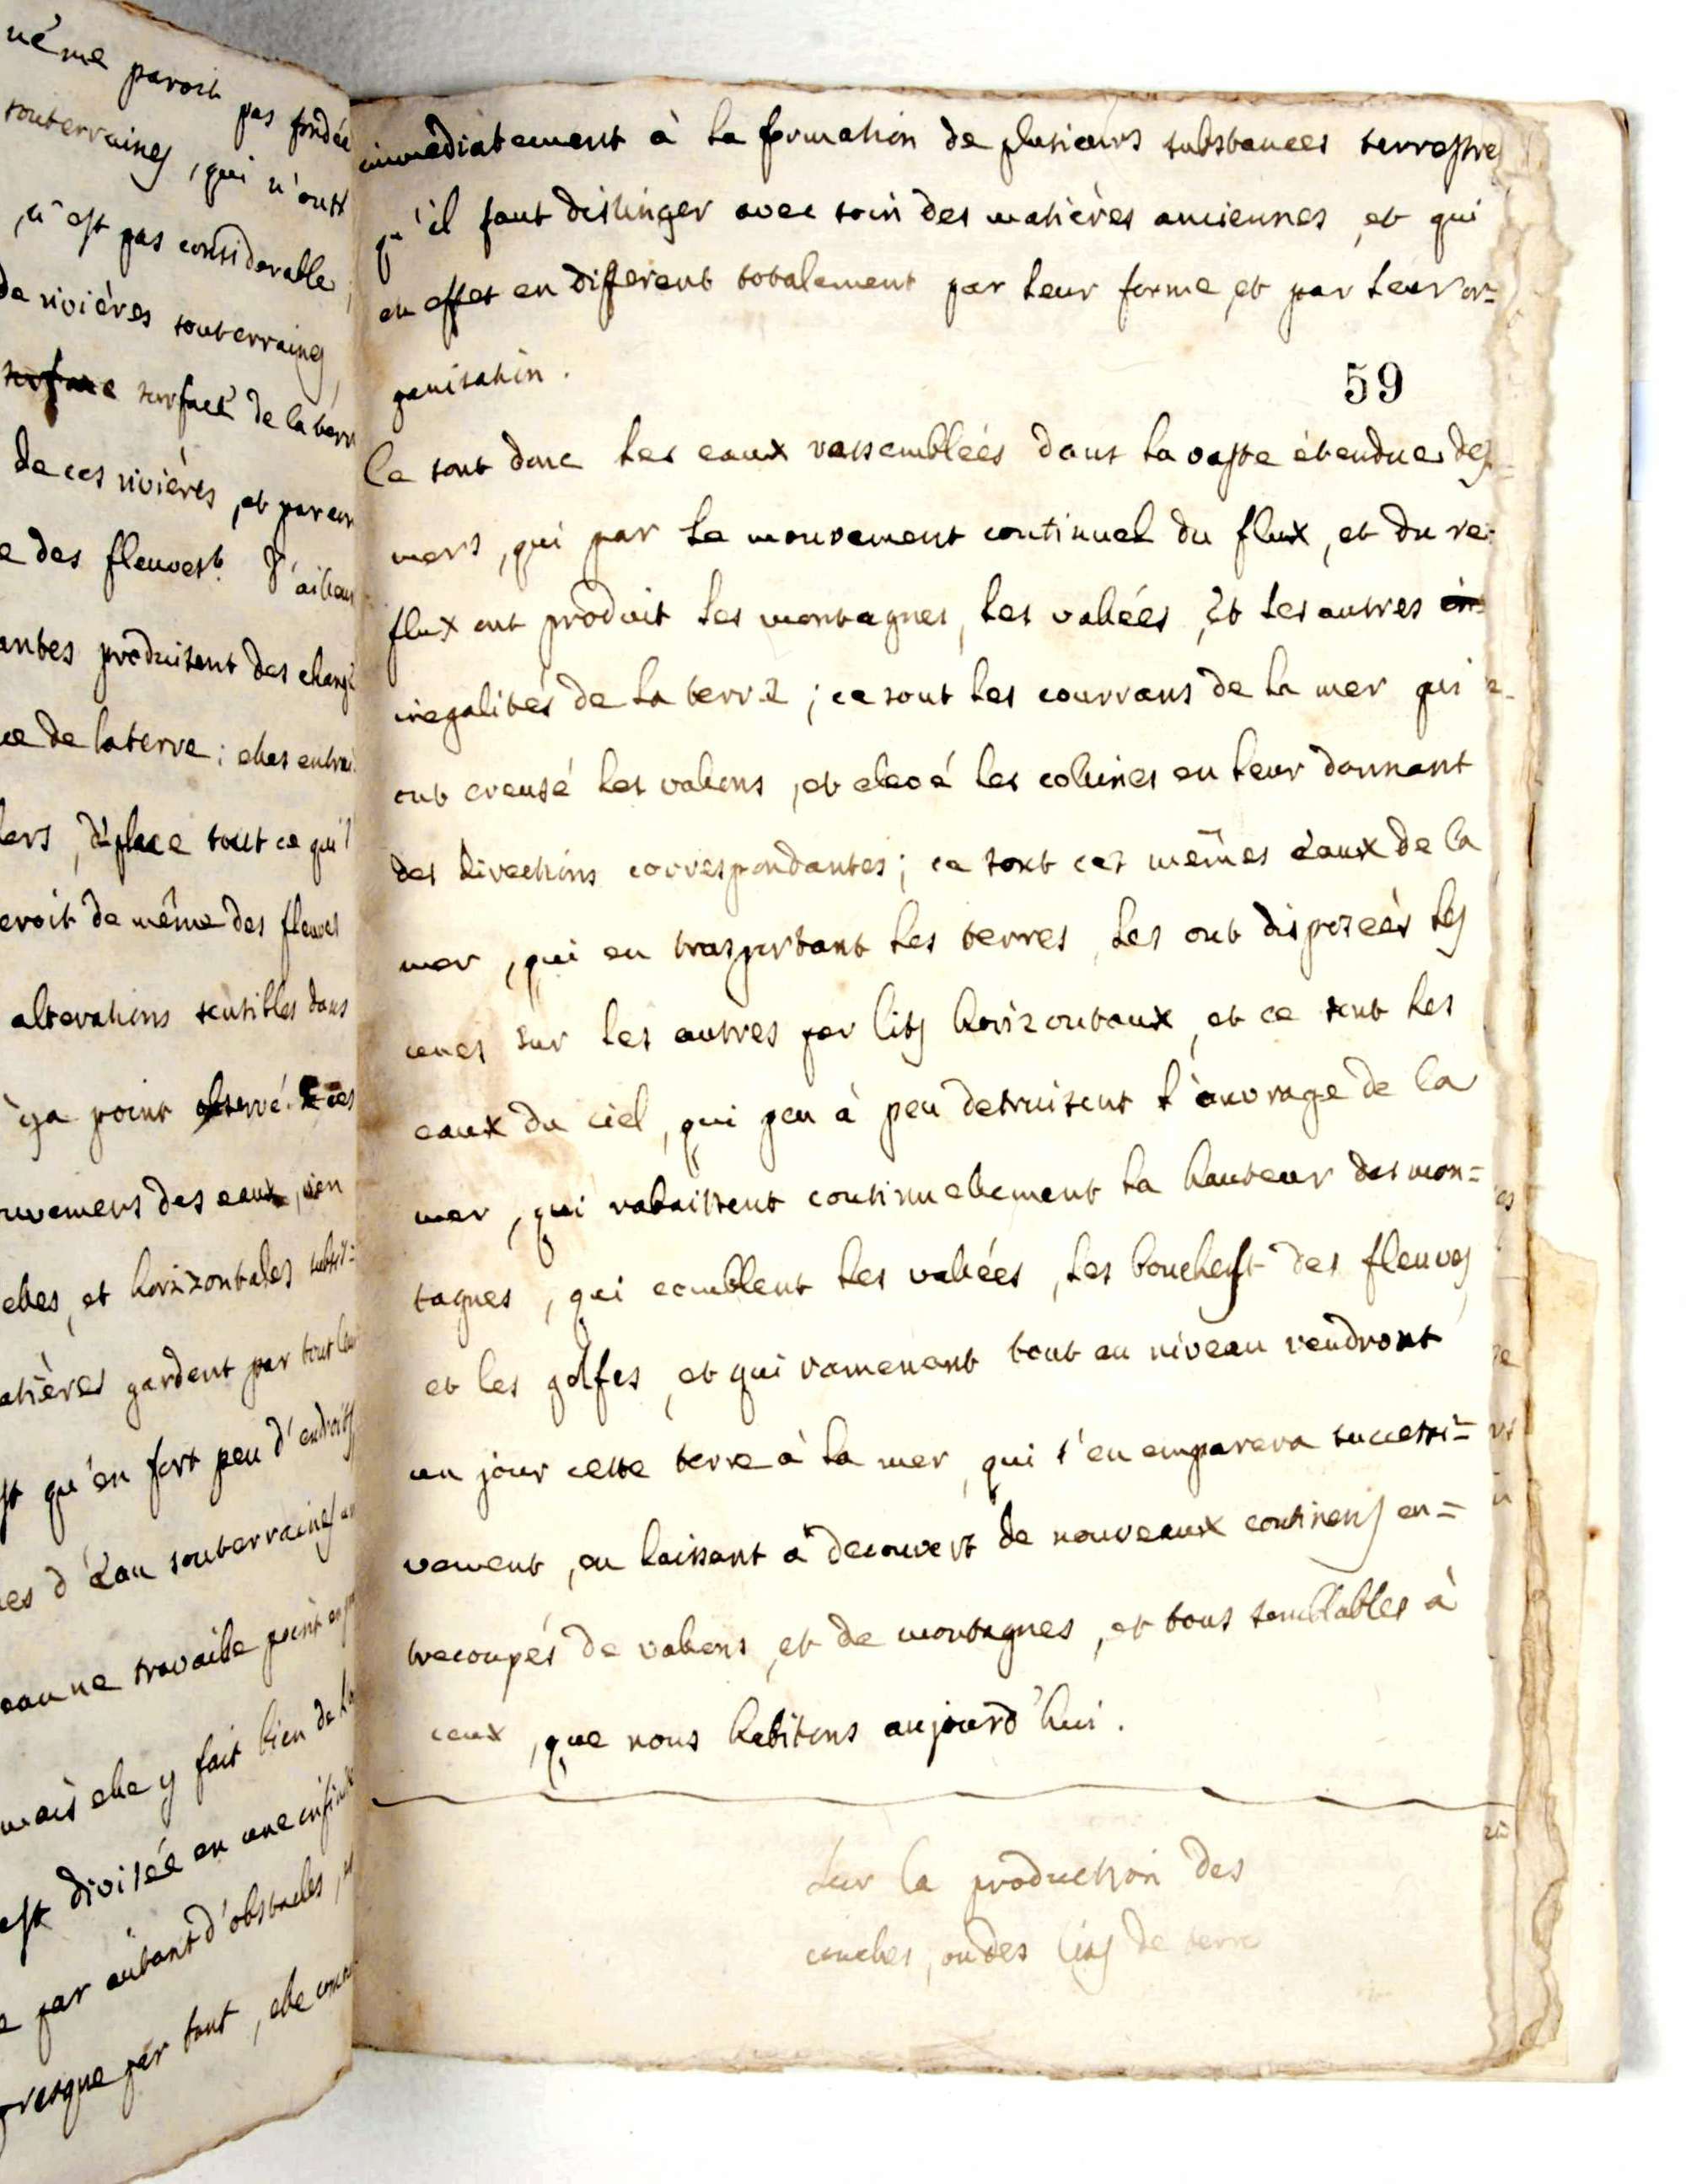 même paroit pas fondée
souterrains, qui n'ont
n'est pas considerable,
de rivières souterrains,
surface surface de la terr
de ces rivières, et par con
e des fleuves. D'ailleurs
antes produisent des chang
ce de la terre; elles entrai
lers, déplace tout ce qu'
eroit de même des fleuves
alterations sensibles dans
y a point observé. ces
uvemens des eaux, rien
elles, et horizontales subsis=
atières gardent par tout leur
st qu'en fort peu d'endroits
es d'eau souterraines
eau ne travaille point
mais elle y fait bien de
est divisée en une infinité
e par autant d'obstacles,
resque par tout, elle
immediatement à la formation de plusieurs substances terrestres
qu'il faut distinger avec soin des matières anciennes, et qui
en effet en different totalement par leur forme, et par leur or=
ganisation.
59
Ce sont donc les eaux rassemblées dans la vaste étendue des
mers, qui par le mouvement continuel du flux, et du re=
flux ont produit les montagnes, les vallées, et les autres in=
inegalités de la terre; ce sont les courrans de la mer qui
ont creusé les vallons, et elevé les collines en leur donnant
des directions correspondantes; ce sont ces mêmes eaux de la
mer, qui en trasportant les terres, les ont disposées les
unes sur les autres par lits horizontaux, et ce sont les
eaux du ciel, qui peu à peu detruisent l'ouvrage de la
mer, qui rabaissent continuellement la hauteur des mon=
tagnes, qui comblent les vallées, les bouches des fleuves,
et les golfes, et qui ramenant tout au niveau rendront
un jour cette terre à la mer, qui s'en emparera successi=
vement, en laissant à decouvert de nouveaux continens en=
trecoupés de vallons, et de montagnes, et tous semblables à
ceux, que nous habitons aujourd'hui.
Sur la production des
couches, ou des lits de terre